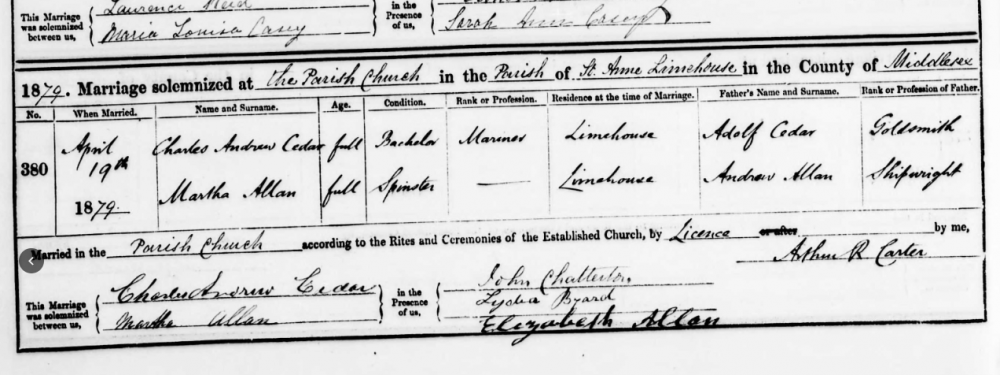 This Marriage was solemnized between us,
Laurence Reid
Maria Louisa Casey
in the Presence of us,
Sarah Casey
1879. Marriage solemnized at The Parish Church in the Parish of St. Anne Limehouse in the County of Middlesex
No. When Married. Name and Surname. Age. Condition. Rank or Profession. Residence at the time of Marriage. Father's Name and Surname. Rank or Profession of Father.
380
April 19th 1879.
Charles Andrew Cedar full Bachelor Mariner Limehouse Adolf Cedar Goldsmith
Martha Allan full Spinster — Limehouse Andrew Allan Shipwright
Married in the Parish Church according to the Rites and Ceremonies of the Established Church, by Licence or after by me,
Arthur R Carter
This Marriage was solemnized between us,
Charles Andrew Cedar
Martha Allan
in the Presence of us,
John Chatterton
Lydia Byard
Elizabeth Allan